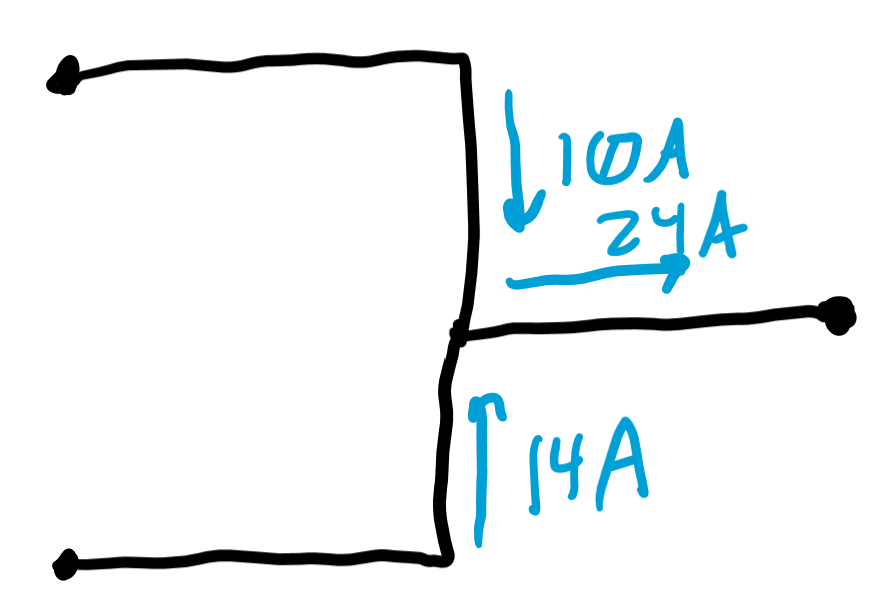 10A
24A
14A